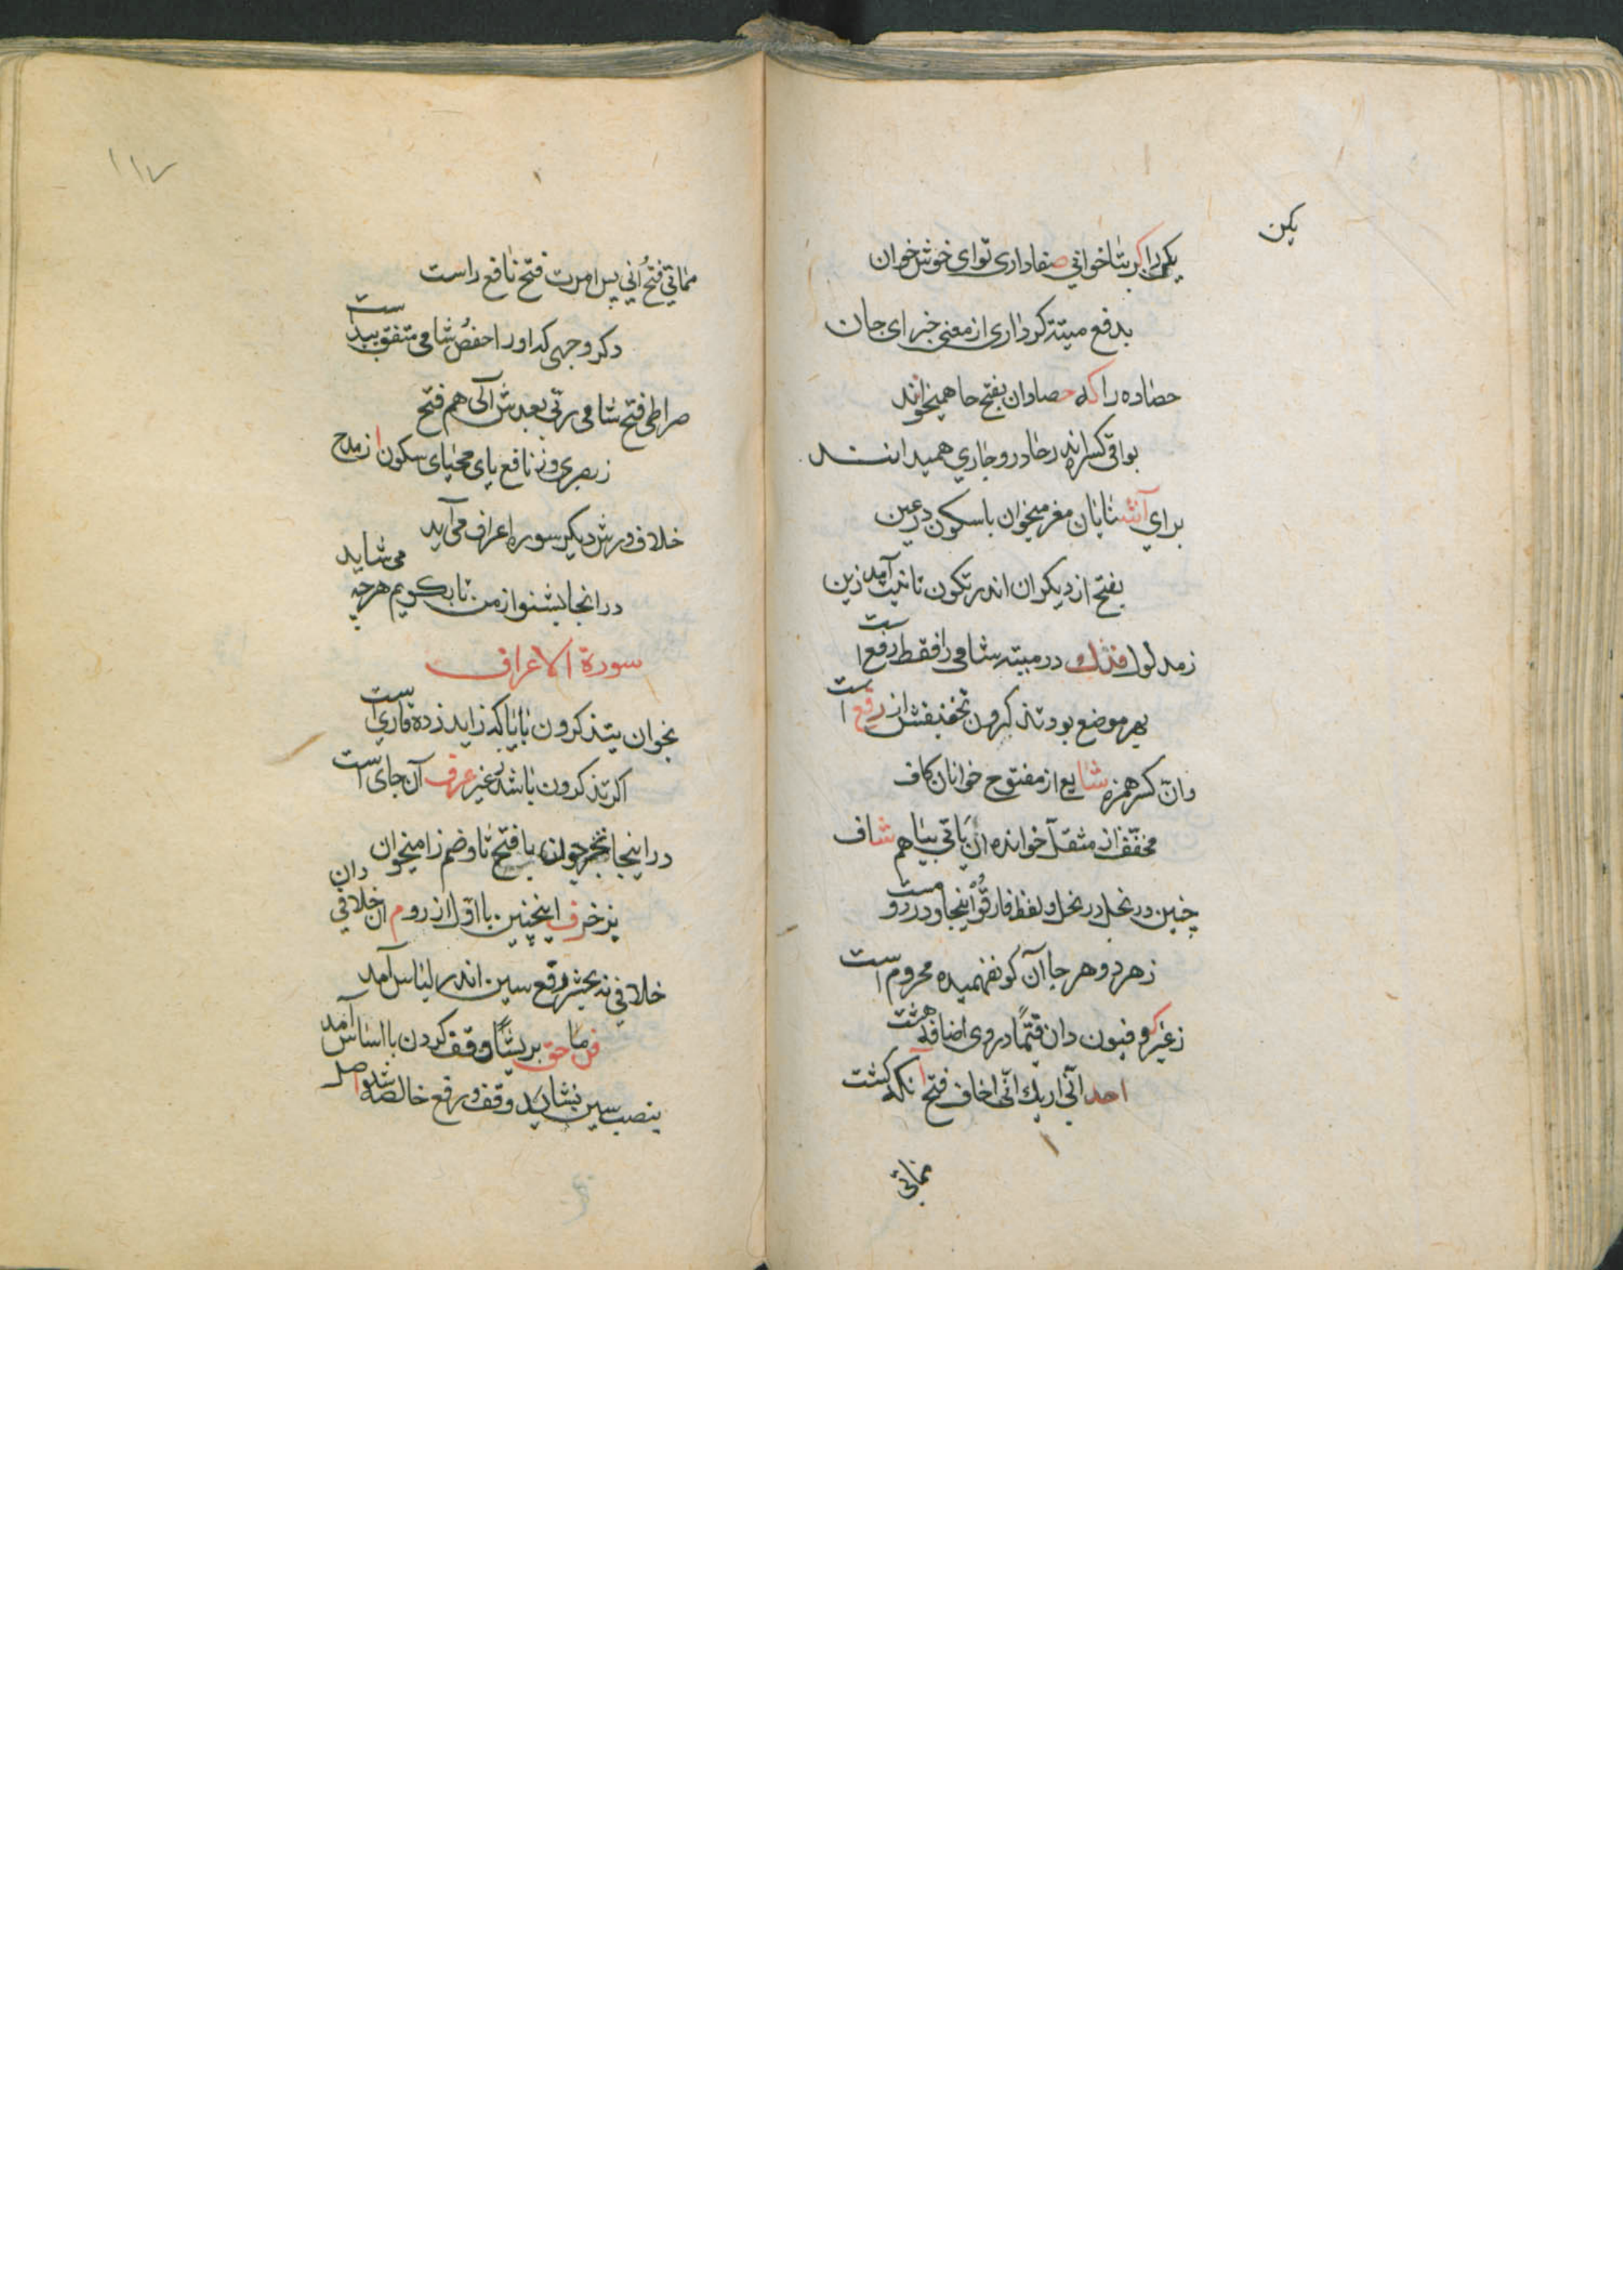 یکن
یکن را کر بتا خوانی صفا داری تو ای خوش خوان
بدفع میتة کر داری از معنی خبر ای جان
حصاده را که حصادان بفتح حا همیخوانند
بواقی کسر اندر حا در و جاری همیدانند
برای آشنایان مغز میخوان با سکون در عین
بفتح از دیکران اندر تکون تانیث آمد زین
زمدلول فذلك در میته شامی را فقط رفع است
بهر موضع بود تذکرون تخفیفش از رفع است
وان کسر همزه شایع از مفتوح خوانان کاف
مخفف از مثقل خوانده ان یاتی بیا هم شاف
چنین در نحل در نحل و لفظ فارقوا اینجا و در روم است
زهر دو هر جا آن کو نفهمیده محروم است
زغیر کوفیون دان قیما در وی اضافه هشت
احد انی اریك انی اخاف فتح آنکه کشت
مماتی
مماتی فتح انی پس امرت فتح نافع راست
دکر وجهی که او را حفص شامی متفق پیداست
صراطی فتح شامی ربی بعدش آلی هم فتح
زبصری وز نافع یای محیای سکون از مدح
خلاف ورش دیکر سوره اعراف می آید
در انجا بشنو از من تا بکویم هرچه می شاید
سورة الاعراف
بخوان یتذکرون با یا که زاید زده قاری است
اکر تذکرون باشد بغیر عرف آن جای است
در اینجا تخرجون با فتح تا و ضم زا میخوان
بزخرف اینچنین با اول از روم ان خلافی دان
خلافی ند بحشر و رفع سین اندر لباس آمد
فریشا وقف کردن با لباس آمد
بنصب سین نشاید وقف و رفع خالصه شد اصل
۱۱۷